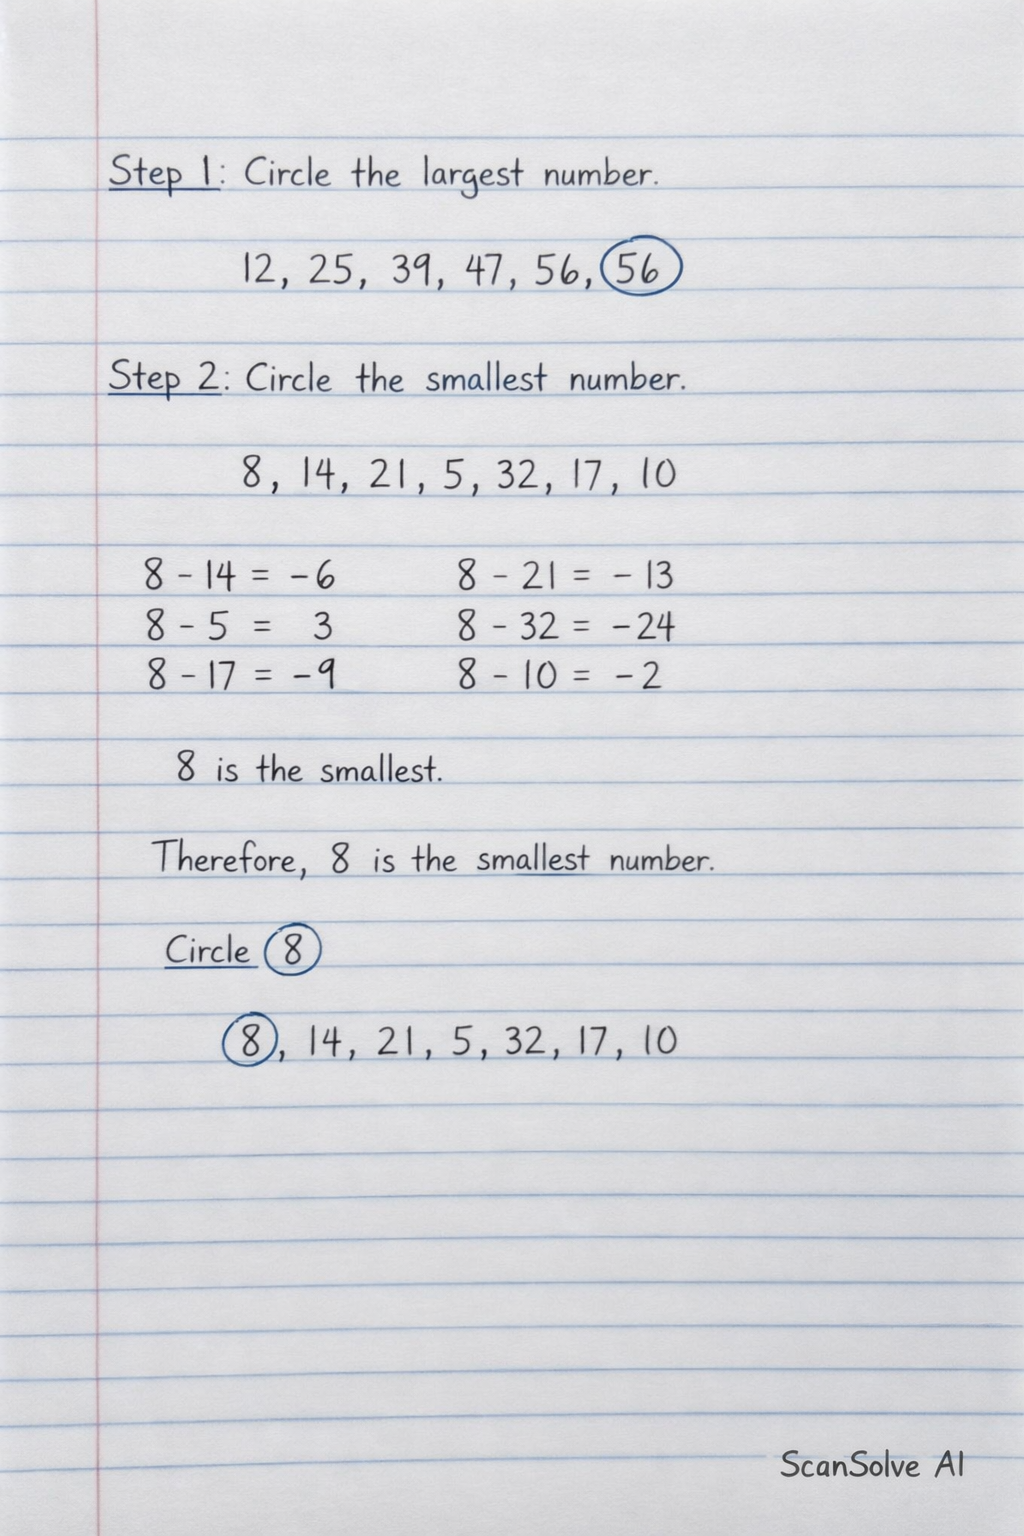 Step 1: Circle the largest number.
12, 25, 39, 47, 56, 56
Step 2: Circle the smallest number.
8, 14, 21, 5, 32, 17, 10
8 - 14 = -6 8 - 21 = -13
8 - 5 = 3 8 - 32 = -24
8 - 17 = -9 8 - 10 = -2
8 is the smallest.
Therefore, 8 is the smallest number.
Circle 8
8, 14, 21, 5, 32, 17, 10
ScanSolve AI